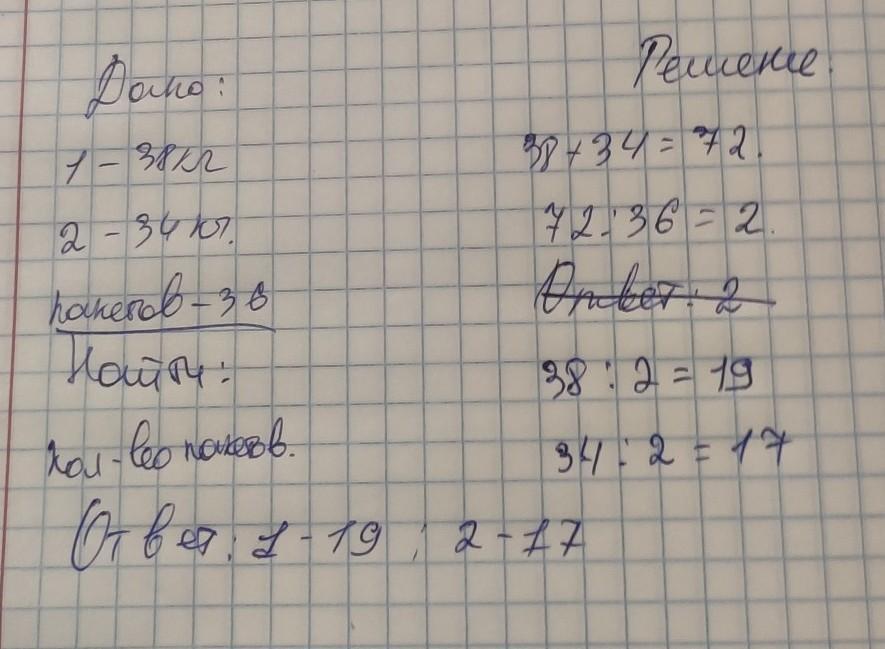 Дано:
1 - 38кг
2 - 34 кг.
пакетов - 36
Найти:
кол-во пакетов.
Решение.
38 + 34 = 72.
72 : 36 = 2.
Ответ: 2
38 : 2 = 19
34 : 2 = 17
Ответ: 1 - 19 ; 2 - 17